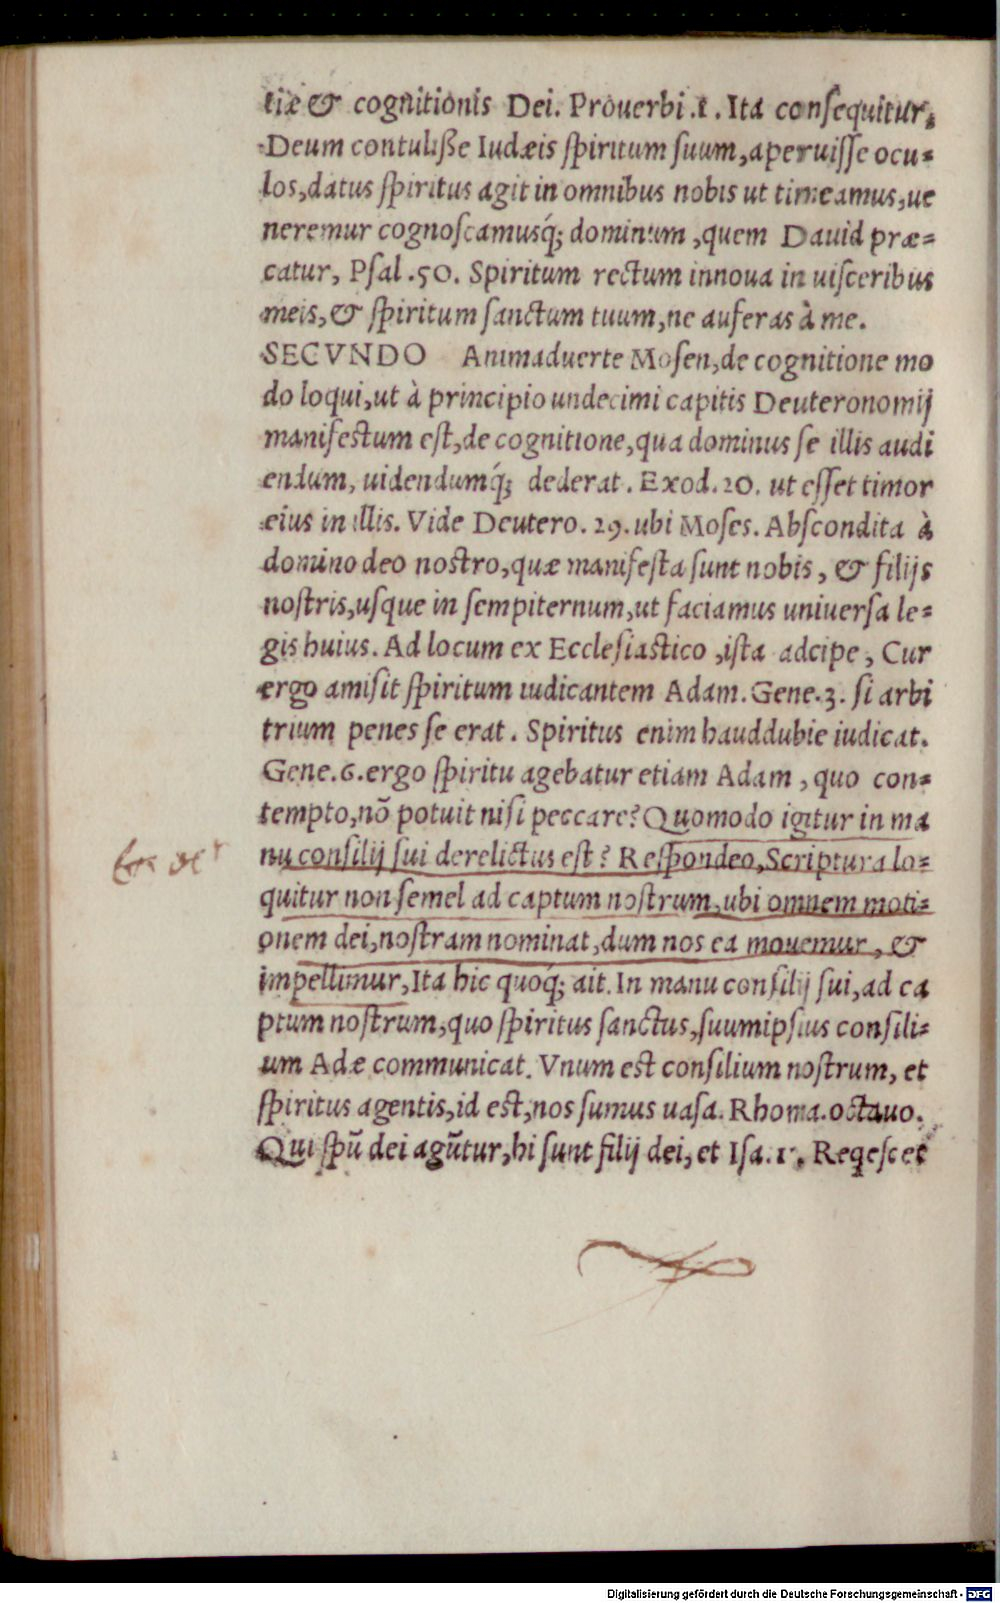 tiæ & cognitionis Dei. Prouerbi.1. Ita consequitur,
Deum contulisse Iudæis spiritum suum, aperuisse ocu=
los, datus spiritus agit in omnibus nobis ut timeamus, ue
neremur cognoscamusq́; dominum, quem Dauid præ=
catur, Psal.50. Spiritum rectum innoua in uisceribus
meis, & spiritum sanctum tuum, ne auferas à me.
SECVNDO Animaduerte Mosen, de cognitione mo
do loqui, ut à principio undecimi capitis Deuteronomij
manifestum est, de cognitione, qua dominus se illis audi
endum, uidendumq́; dederat. Exod.20. ut esset timor
eius in illis. Vide Deutero.29. ubi Moses. Abscondita à
domino deo nostro, quæ manifesta sunt nobis, & filijs
nostris, usque in sempiternum, ut faciamus uniuersa le=
gis huius. Ad locum ex Ecclesiastico, ista adcipe, Cur
ergo amisit spiritum iudicantem Adam. Gene.3. si arbi
trium penes se erat. Spiritus enim hauddubie iudicat.
Gene.6. ergo spiritu agebatur etiam Adam, quo con=
tempto, nō potuit nisi peccare? Quomodo igitur in ma
nu consilij sui derelictus est? Respondeo, Scriptura lo=
quitur non semel ad captum nostrum, ubi omnem moti=
onem dei, nostram nominat, dum nos ea mouemur, &
impellimur, Ita hic quoq́; ait. In manu consilij sui, ad ca
ptum nostrum, quo spiritus sanctus, suumipsius consili=
um Adæ communicat. Vnum est consilium nostrum, et
spiritus agentis, id est, nos sumus uasa. Rhoma.octauo.
Qui spū dei agūtur, hi sunt filij dei, et Isa.11. Reqescet
Digitalisierung gefördert durch die Deutsche Forschungsgemeinschaft - DFG